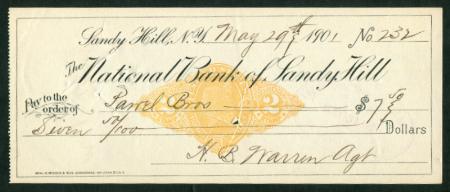 Sandy Hill, N.Y. May 29th 1901 No. 232
The National Bank of Sandy Hill
Pay to the order of Parrel Bros $7 50/
Seven 50/100 Dollars
H. B. Warren Agt